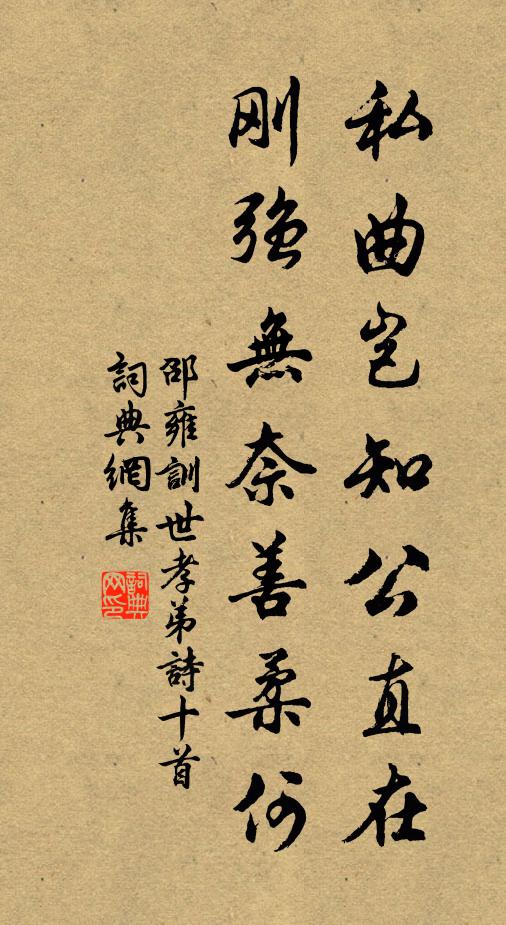 私曲岂知公直在
刚强無奈善柔何
邵雍訓世孝弟詩十首
詞典網集
詞典网印